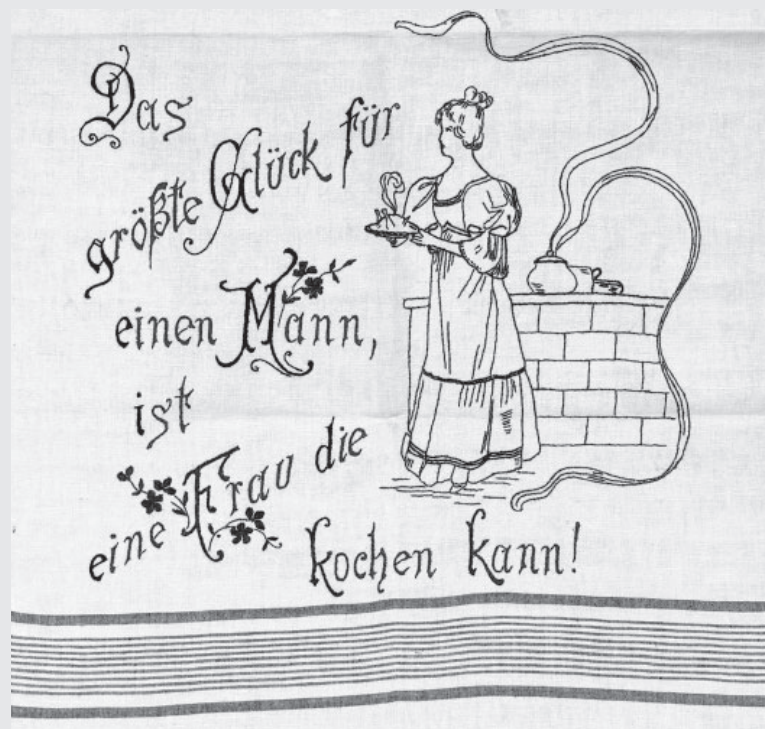 Das
größte Glück für
einen Mann,
ist
eine Frau die
kochen kann!